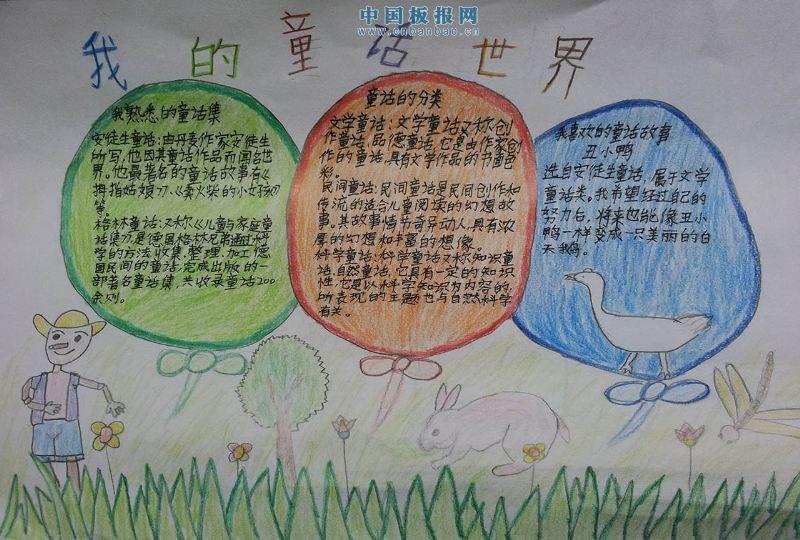 中国板报网
www.cnbanbao.cn
我的童话世界
我熟悉的童话集
安徒生童话:由丹麦作家安徒生
所写,他因其童话作品而闻名世
界。他最著名的童话故事有《
拇指姑娘》、《卖火柴的小女孩》
等。
格林童话:又称《儿童与家庭童
话集》是德国格林兄弟通过科
学的方法收集、整理、加工德
国民间的童话,完成出版的一
部著名童话集,共收录童话200
余则。
童话的分类
文学童话:文学童话又称创
作童话、品德童话,它是由作家创
作的童话,具有文学作品的书面色
彩。
民间童话:民间童话是民间创作和
传流的适合儿童阅读的幻想故
事。其故事情节奇异动人,具有浓
厚的幻想和丰富的想像。
科学童话:科学童话又称知识童
话、自然童话,它具有一定的知识
性,它是以科学知识为内容的,
所表现的主题也与自然科学
有关。
我喜欢的童话故事
丑小鸭
选自安徒生童话,属于文学
童话类。我希望经过自己的
努力后,将来也能像丑小
鸭一样变成一只美丽的白
天鹅。